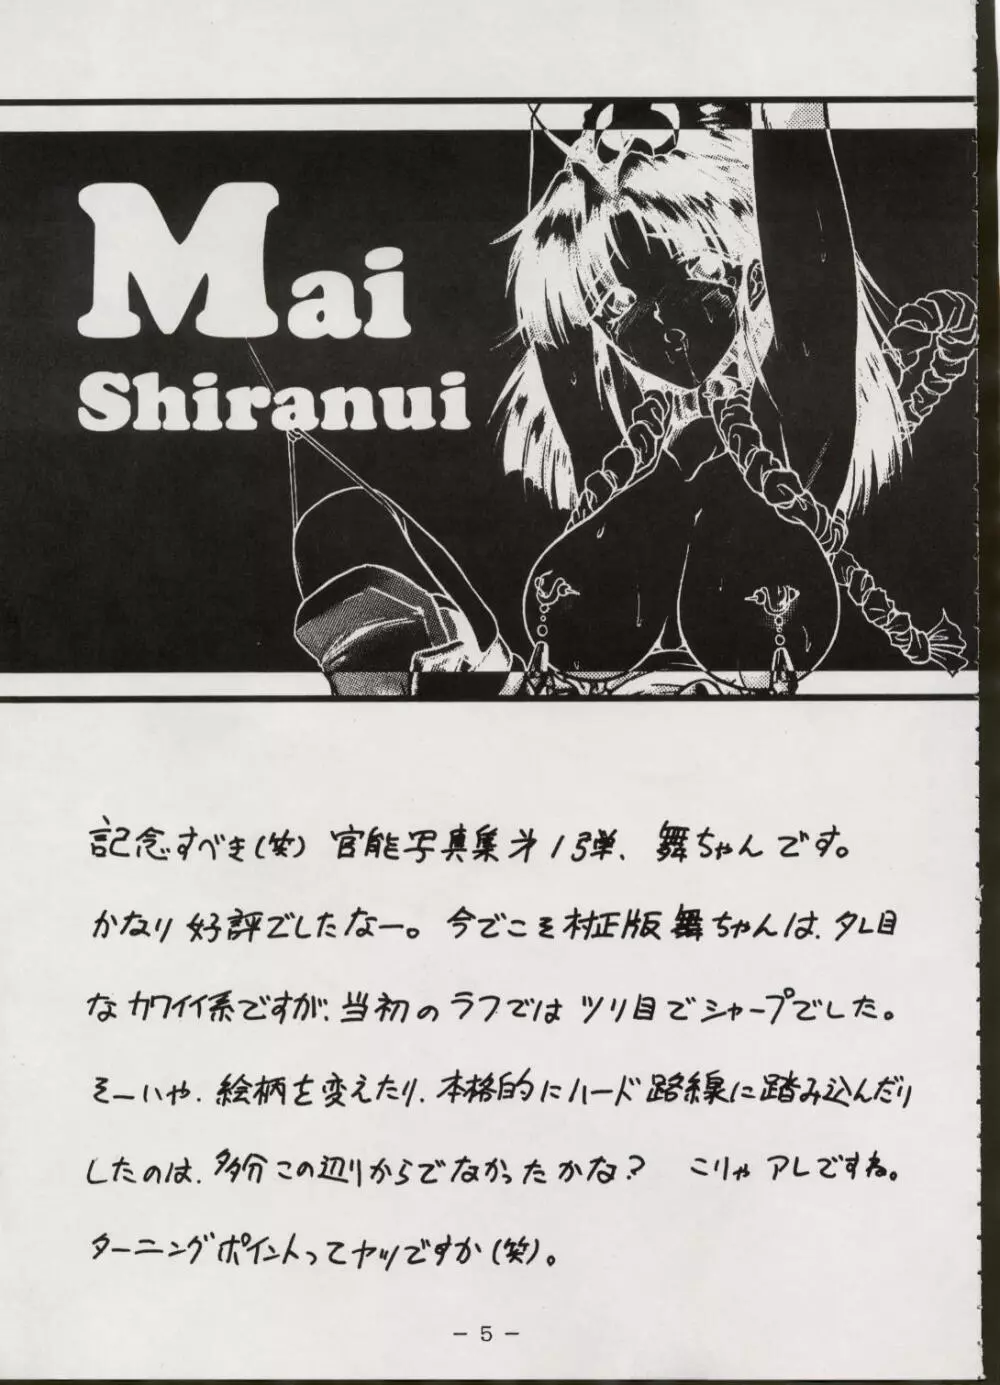 Mai
Shiranui
記念すべき(笑) 官能写真集才1弾、舞ちゃんです。
かなり好評でしたなー。今でこそ村正版舞ちゃんは、タレ目
なカワイイ系ですが、当初のラフではツリ目でシャープでした。
そーいや、絵柄を変えたり、本格的にハード路線に踏み込んだり
したのは、多分この辺りからでなかったかな? こりゃアレですね。
ターニングポイントってヤツですか(笑)。
- 5 -